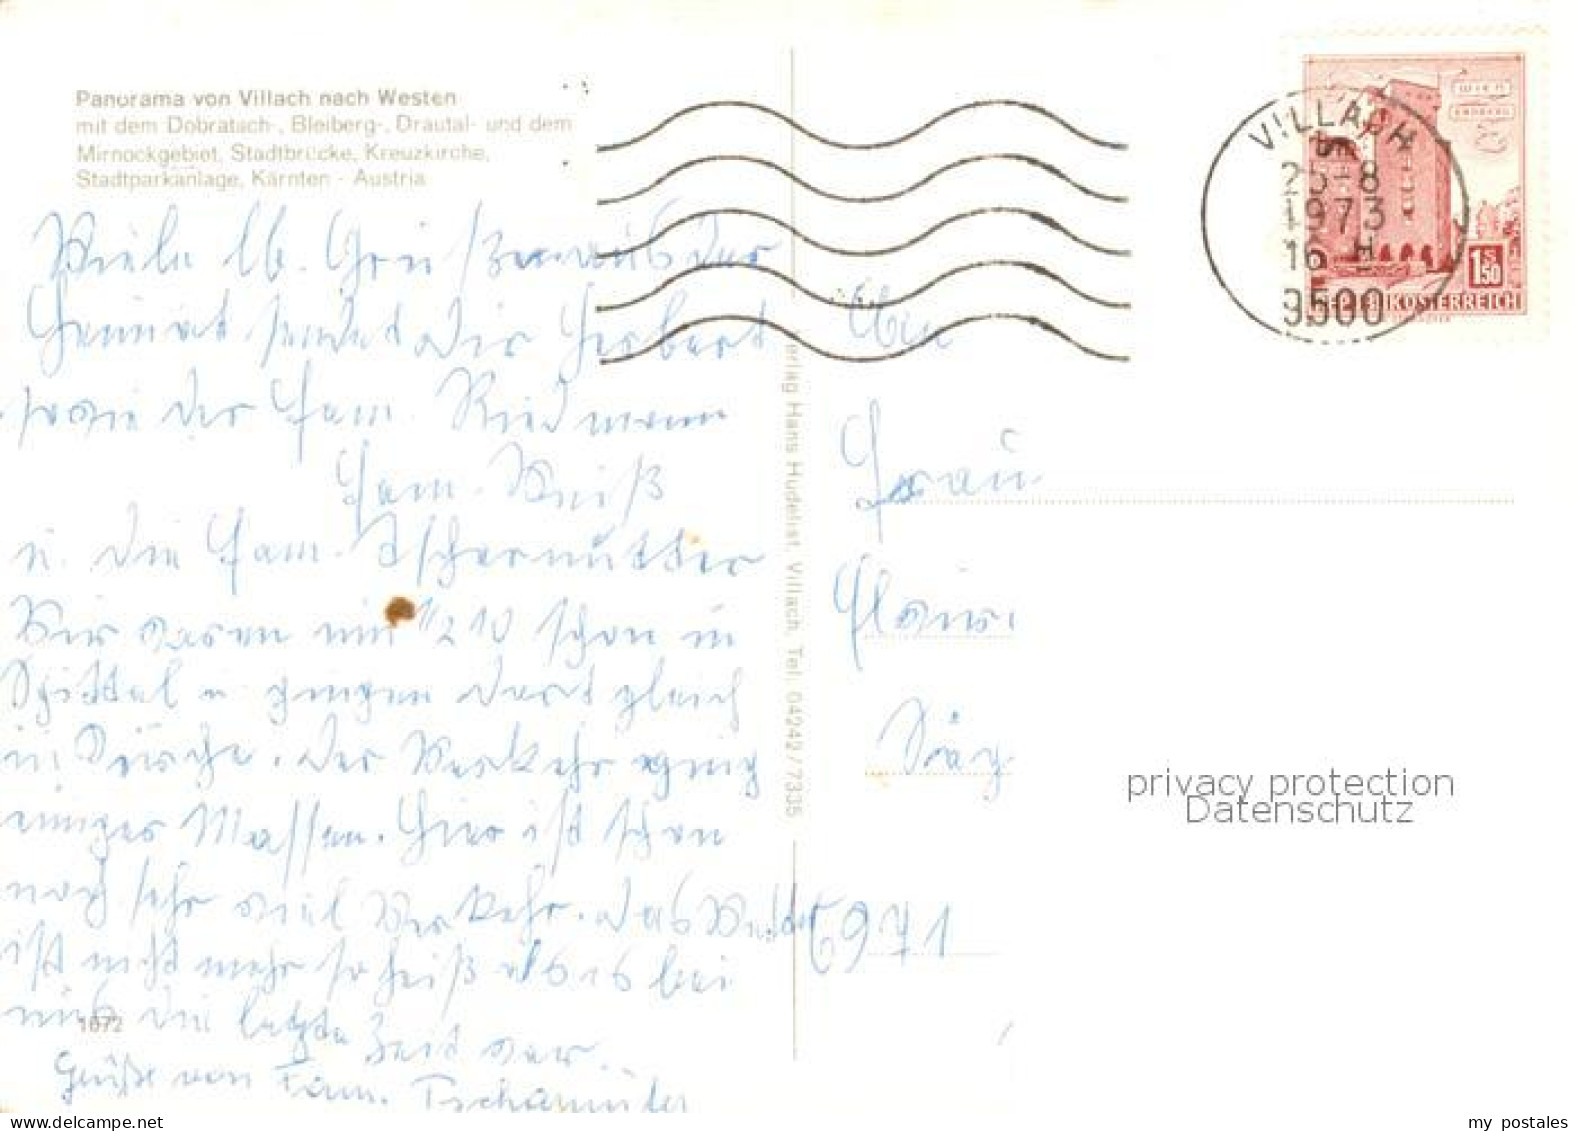 Panorama von Villach nach Westen
mit dem Dobratsch-, Bleiberg-, Drautal- und dem
Mirnockgebiet, Stadtbrücke, Kreuzkirche,
Stadtparkanlage, Kärnten - Austria
VILLACH
25-8
1973
16 H
9500
WIEN
ERDBERG
1.50
REPUBLIK ÖSTERREICH
Viele lb. Grüße aus der
Heimat sendet dir Herbert
sowie der Fam. Riedmann
Fam. Weiß
u. die Fam. Tschernutter
Wir waren um 1/2 10 schon in
Spittal u. gingen dort gleich
in Kirche. Der Verkehr ging
einiger Massen. Hier ist schon
noch sehr viel Verkehr. Das Wetter
ist nicht mehr so heiß als es bei
uns die letzte Zeit war.
Grüße von Fam. Tschernutter
1072
Verlag Hans Hudelist, Villach, Tel. 04242/7305
An
Frau
Säg
6971
privacy protection
Datenschutz
my postales